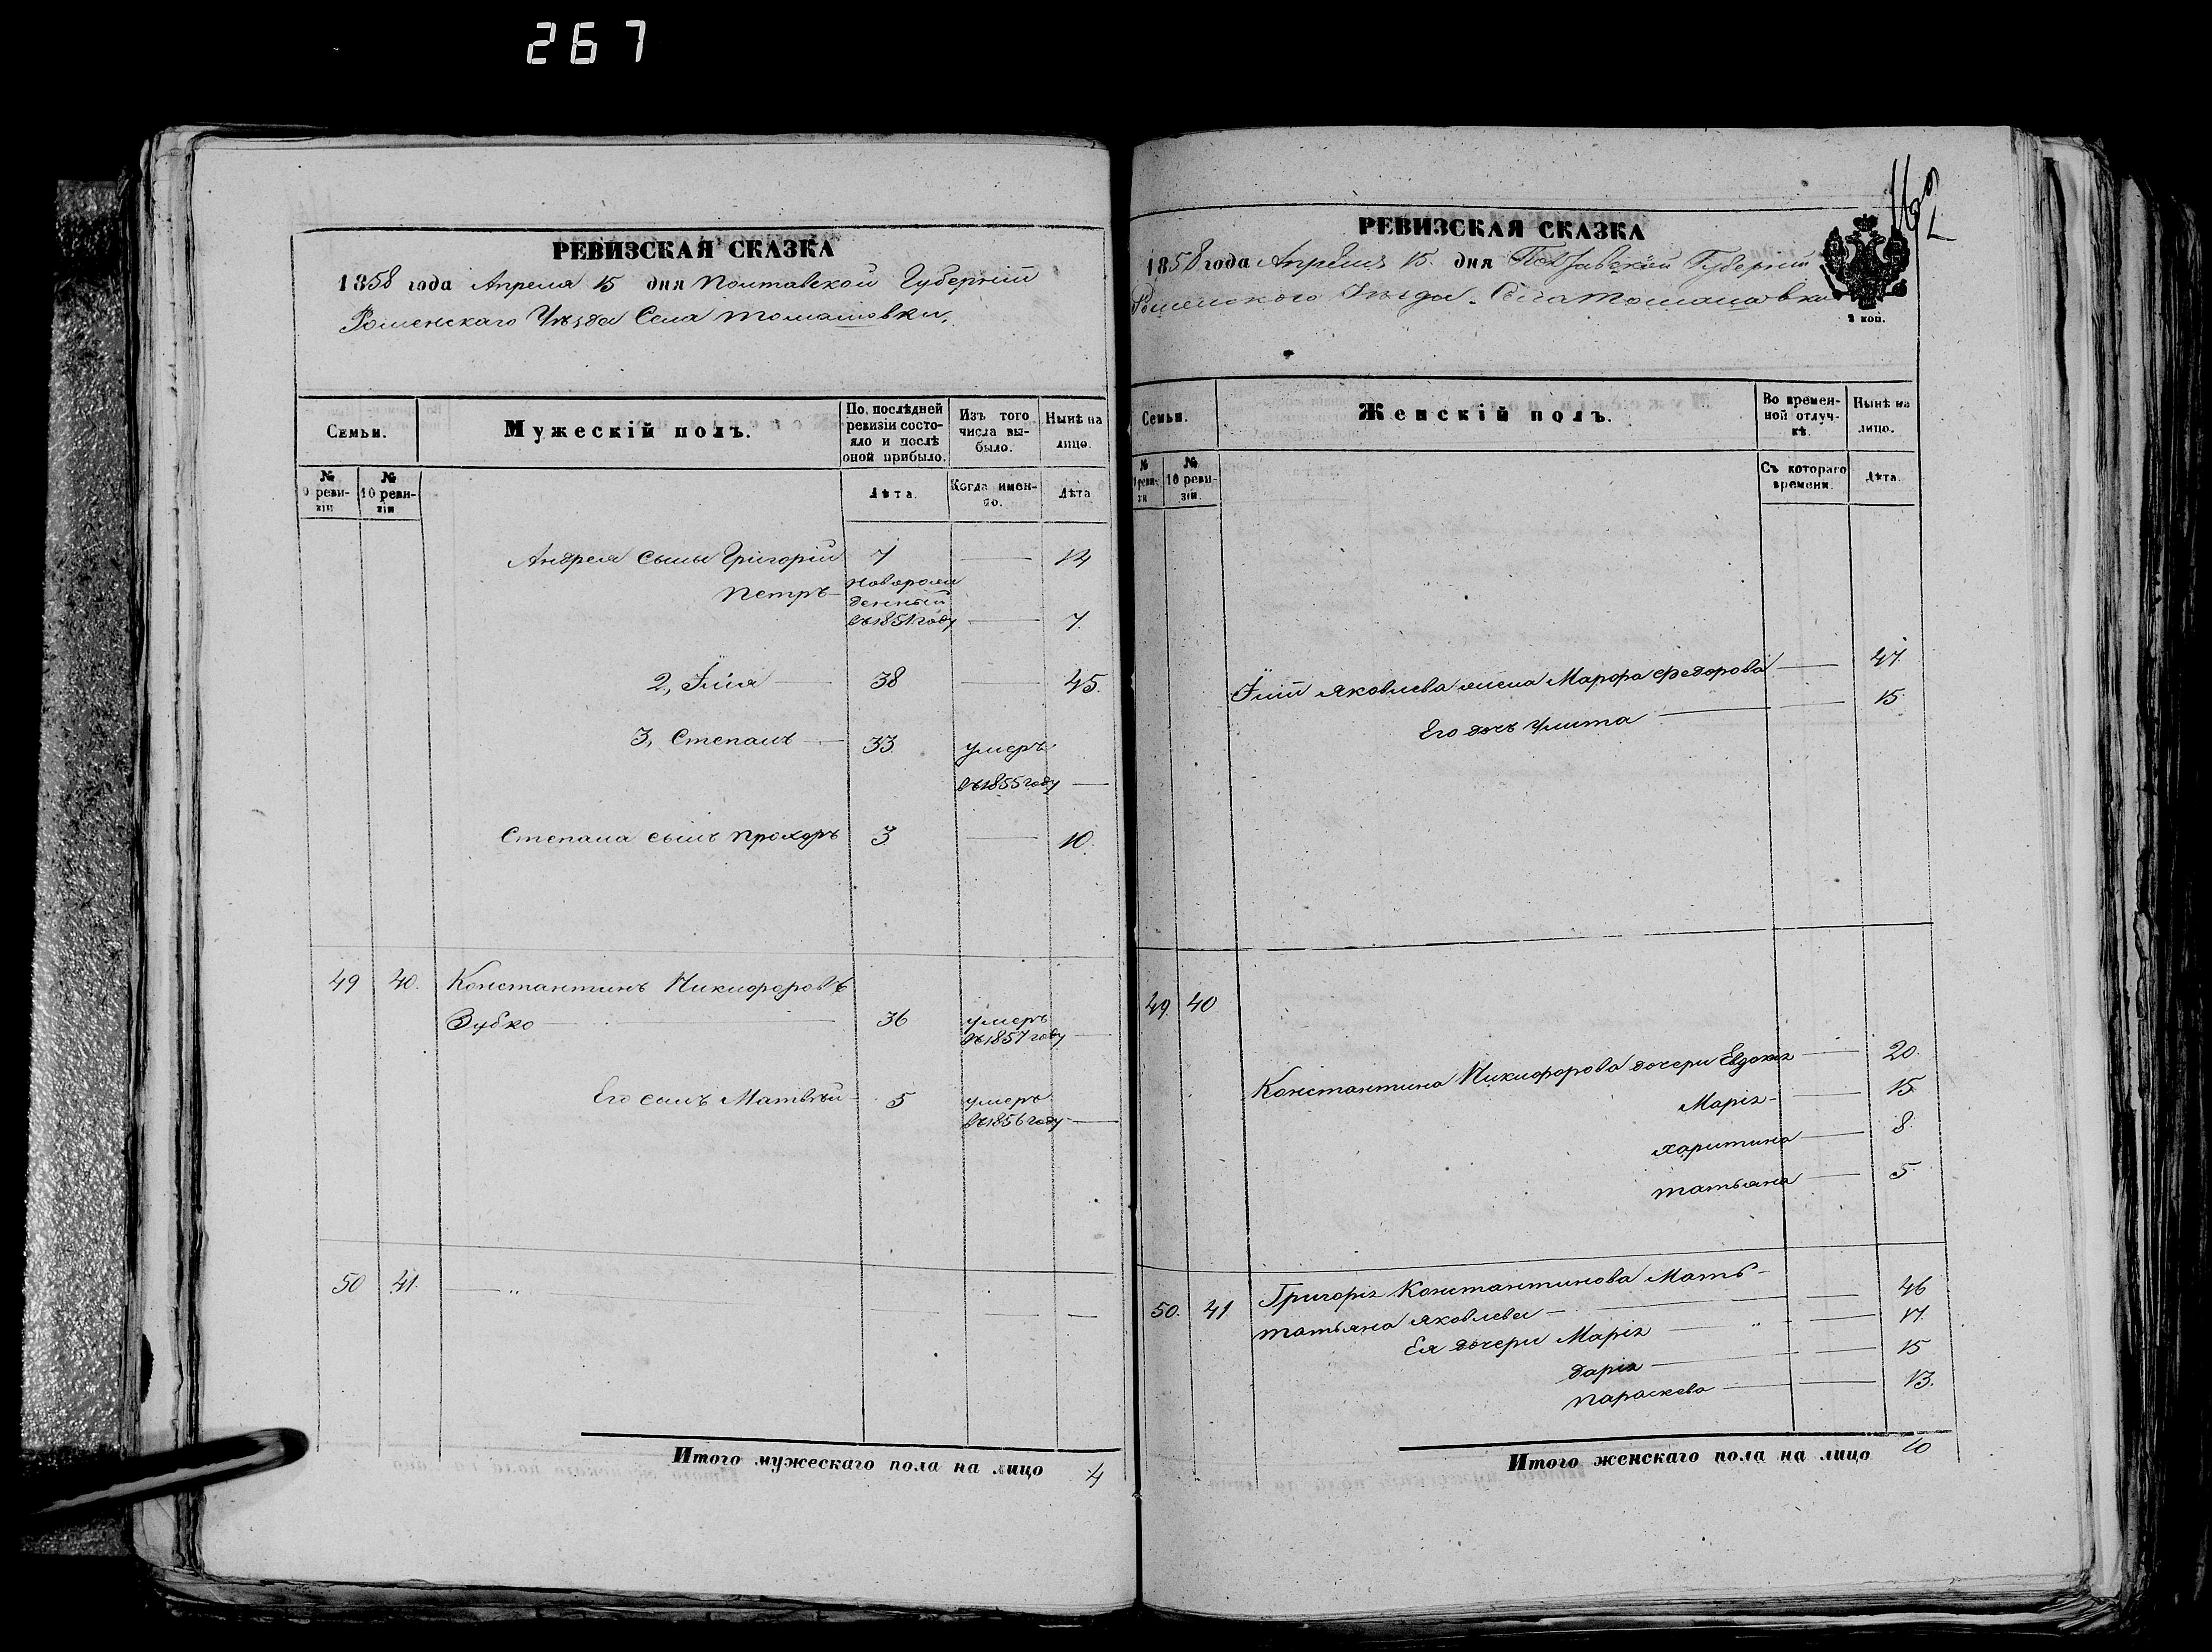 267
РЕВИЗСКАЯ СКАЗКА
1858 года Апреля 15 дня Полтавской Губерніи
Роменскаго Уѣзда Села Томашовки,
Семьи.
Мужескій полъ.
По послѣдней ревизіи состояло и послѣ оной прибыло.
Изъ того числа выбыло.
Нынѣ на лицо.
№ 9 ревизіи
№ 10 ревизіи
Лѣта.
Когда именно.
Лѣта
Андрея сыны Григорій 7 — 14
Петръ — новорожденный въ 1851 году — 7.
2, Илія — 38 — 45.
3, Степанъ — 33. умеръ въ 1855 году —
Степана сынъ Прохоръ 3 — 10.
49 40. Константинъ Никифоровъ
Зубко — 36 умеръ въ 1857 году —
Его сынъ Матвѣй — 5 умеръ въ 1856 году —
50 41. — „ — — —
Итого мужескаго пола на лицо 4
162
РЕВИЗСКАЯ СКАЗКА
1858 года Апрѣля 15. дня Полтавской Губерніи
Роменского Уѣзда. Села Томашовки
2 коп.
Семьи.
Женскій полъ.
Во временной отлучкѣ.
Нынѣ на лицо.
№ 9 ревизіи
№ 10 ревизіи.
Съ котораго времени.
Лѣта.
Иліи Яковлева жена Марфа Федорова — 47.
Его дочь Улита — — 15.
49. 40
Константина Никифорова дочери Евдокія — 20.
Марія — — 15.
Харитина — 8.
Татьяна — 5.
50. 41 Григорія Константинова Мать —
Татьяна Яковлева — — 46
Ея дочери Марія — „ — 17.
Дарія — — 15
Параскева — — 13.
Итого женскаго пола на лицо 10